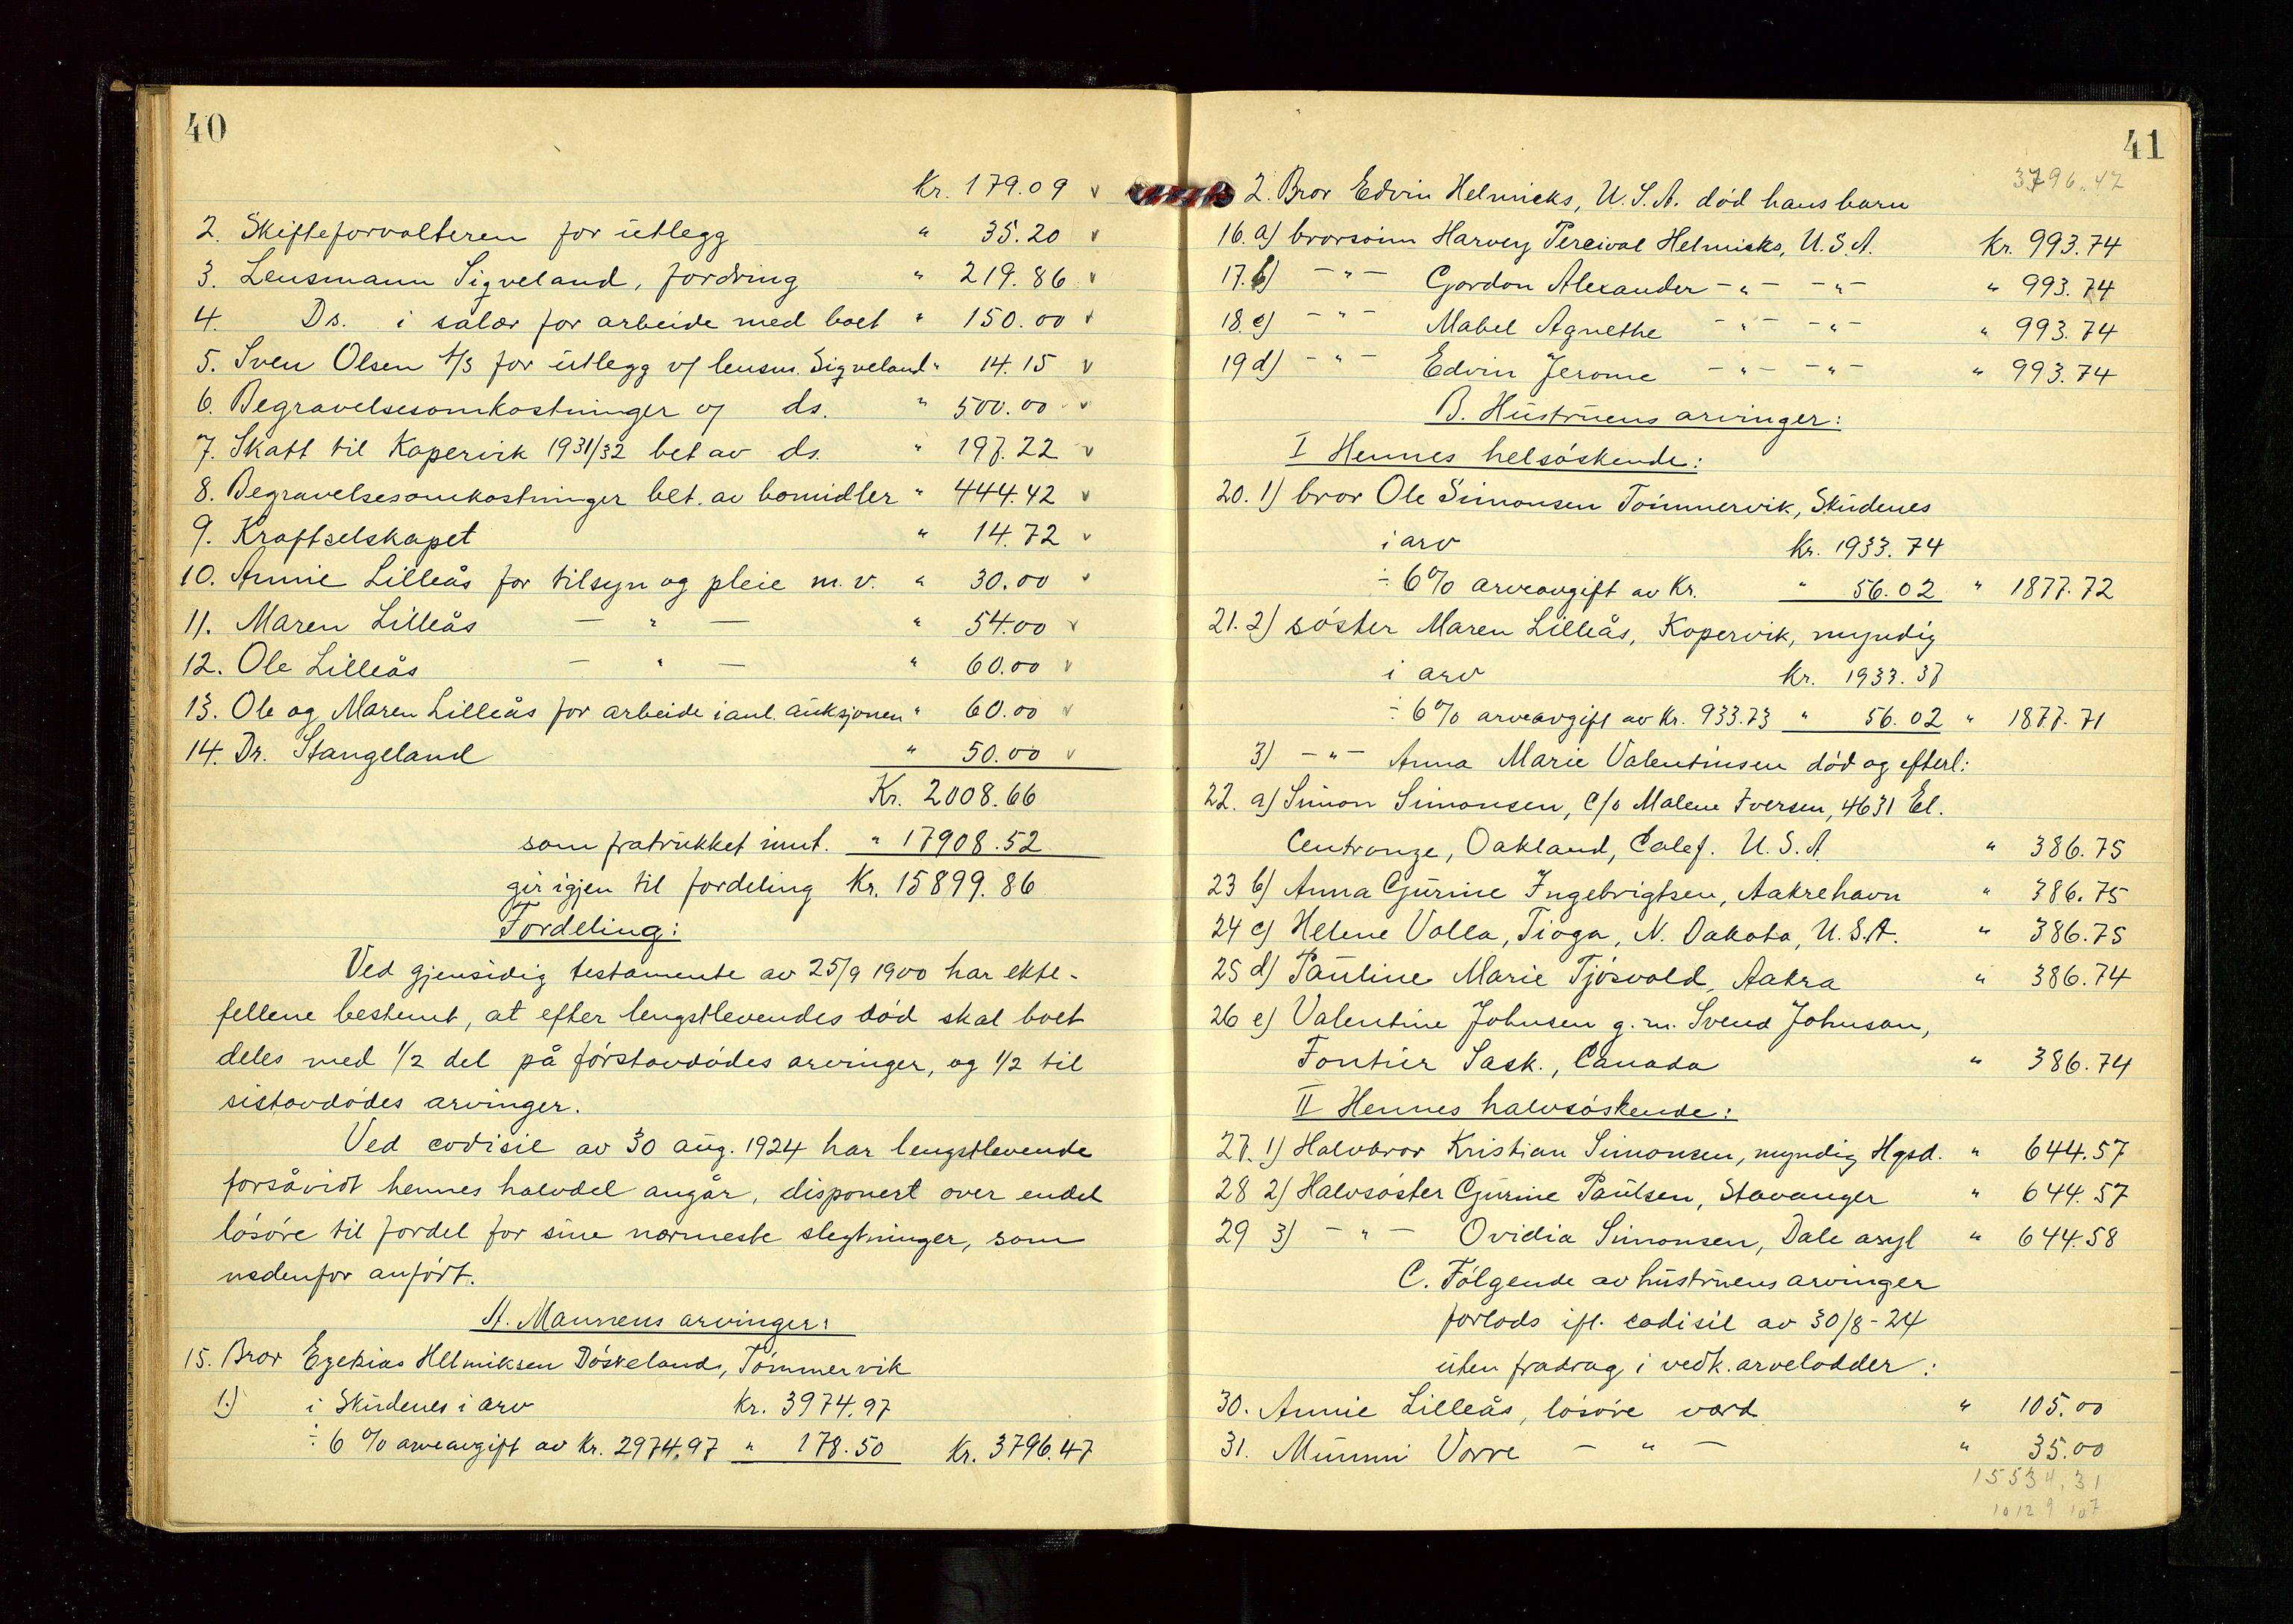 40
Kr. 179.09 v
2. Skifteforvalteren for utlegg " 35.20 v
3. Lensmann Sigveland, fordring " 219.86 v
4. Ds. i salær for arbeide med boet " 150.00 v
5. Sven Olsen A/S for utlegg v/ lensm. Sigveland " 14.15 v
6. Begravelsesomkostninger v/ ds. " 500.00 v
7. Skatt til Kopervik 1931/32 bet av ds. " 197.22 v
8. Begravelsesomkostninger bet. av bomidler " 444.42 v
9. Kraftselskapet " 14.72 v
10. Annie Lilleås for tilsyn og pleie m.v. " 30.00 v
11. Maren Lilleås — " — " 54.00 v
12. Ole Lilleås — " — " 60.00 v
13. Ole og Maren Lilleås for arbeide i anl. auksjonen " 60.00 v
14. Dr. Stangeland " 50.00 v
Kr. 2008.66
som fratrukket innt. " 17908.52
gir igjen til fordeling Kr. 15899.86
Fordeling:
Ved gjensidig testamente av 25/9 1900 har ekte-
fellene bestemt, at efter lengstlevendes død skal boet
deles med 1/2 del på førstavdødes arvinger, og 1/2 til
sistavdødes arvinger.
Ved codisil av 30 aug. 1924 har lengstlevende
forsåvidt hennes halvdel angår, disponert over endel
løsøre til fordel for sine nærmeste slegtninger, som
nedenfor anført.
A. Mannens arvinger:
15. Bror Ezekias Helmiksen Døskeland, Tømmervik
1.) i Skudenes i arv Kr. 3974.97
÷ 6 % arveavgift av Kr. 2974.97 " 178.50 Kr. 3796.47
41
3796.47
2. Bror Edvin Helmicks, U.S.A. død hans barn
16. a) brorsønn Harvey Percival Helmicks, U.S.A. Kr. 993.74
17. b) — " — Gordon Alexander — " — — " — " 993.74
18. c) — " — Mabel Agnethe — " — — " — " 993.74
19 d) — " — Edvin Jerome — " — — " — " 993.74
B. Hustruens arvinger:
I Hennes helsøskende:
20. 1) bror Ole Simonsen Tømmervik, Skudenes
i arv Kr. 1933.74
÷ 6% arveavgift av Kr. " 56.02 " 1877.72
21. 2) søster Maren Lilleås, Kopervik, myndig
i arv Kr. 1933.37
÷ 6% arveavgift av Kr. 933.73 " 56.02 " 1877.71
3) — " — Anna Marie Valentinsen død og efterl:
22. a) Simon Simonsen, c/o Malene Iversen, 4631 El.
Centronze, Oakland, Calef. U.S.A. " 386.75
23 b) Anna Gurine Ingebrigtsen, Aakrehavn " 386.75
24 c) Helene Valla, Tioga, N. Dakota, U.S.A. " 386.75
25 d) Pauline Marie Tjøsvold, Aakra " 386.74
26 e) Valentine Johnsen g.m. Svend Johnson,
Fontier Sask., Canada " 386.74
II Hennes halvsøskende:
27. 1) Halvbror Kristian Simonsen, myndig Hgsd. " 644.57
28 2) Halvsøster Gurine Paulsen, Stavanger " 644.57
29 3) — " — Ovidia Simonsen, Dale asyl " 644.58
C. Følgende av hustruens arvinger
forlods ifl. codisil av 30/8-24
uten fradrag i vedk. arvelodder:
30. Annie Lilleås, løsøre værd " 105.00
31. Mummi Vorre — " — " 35.00
15534.31